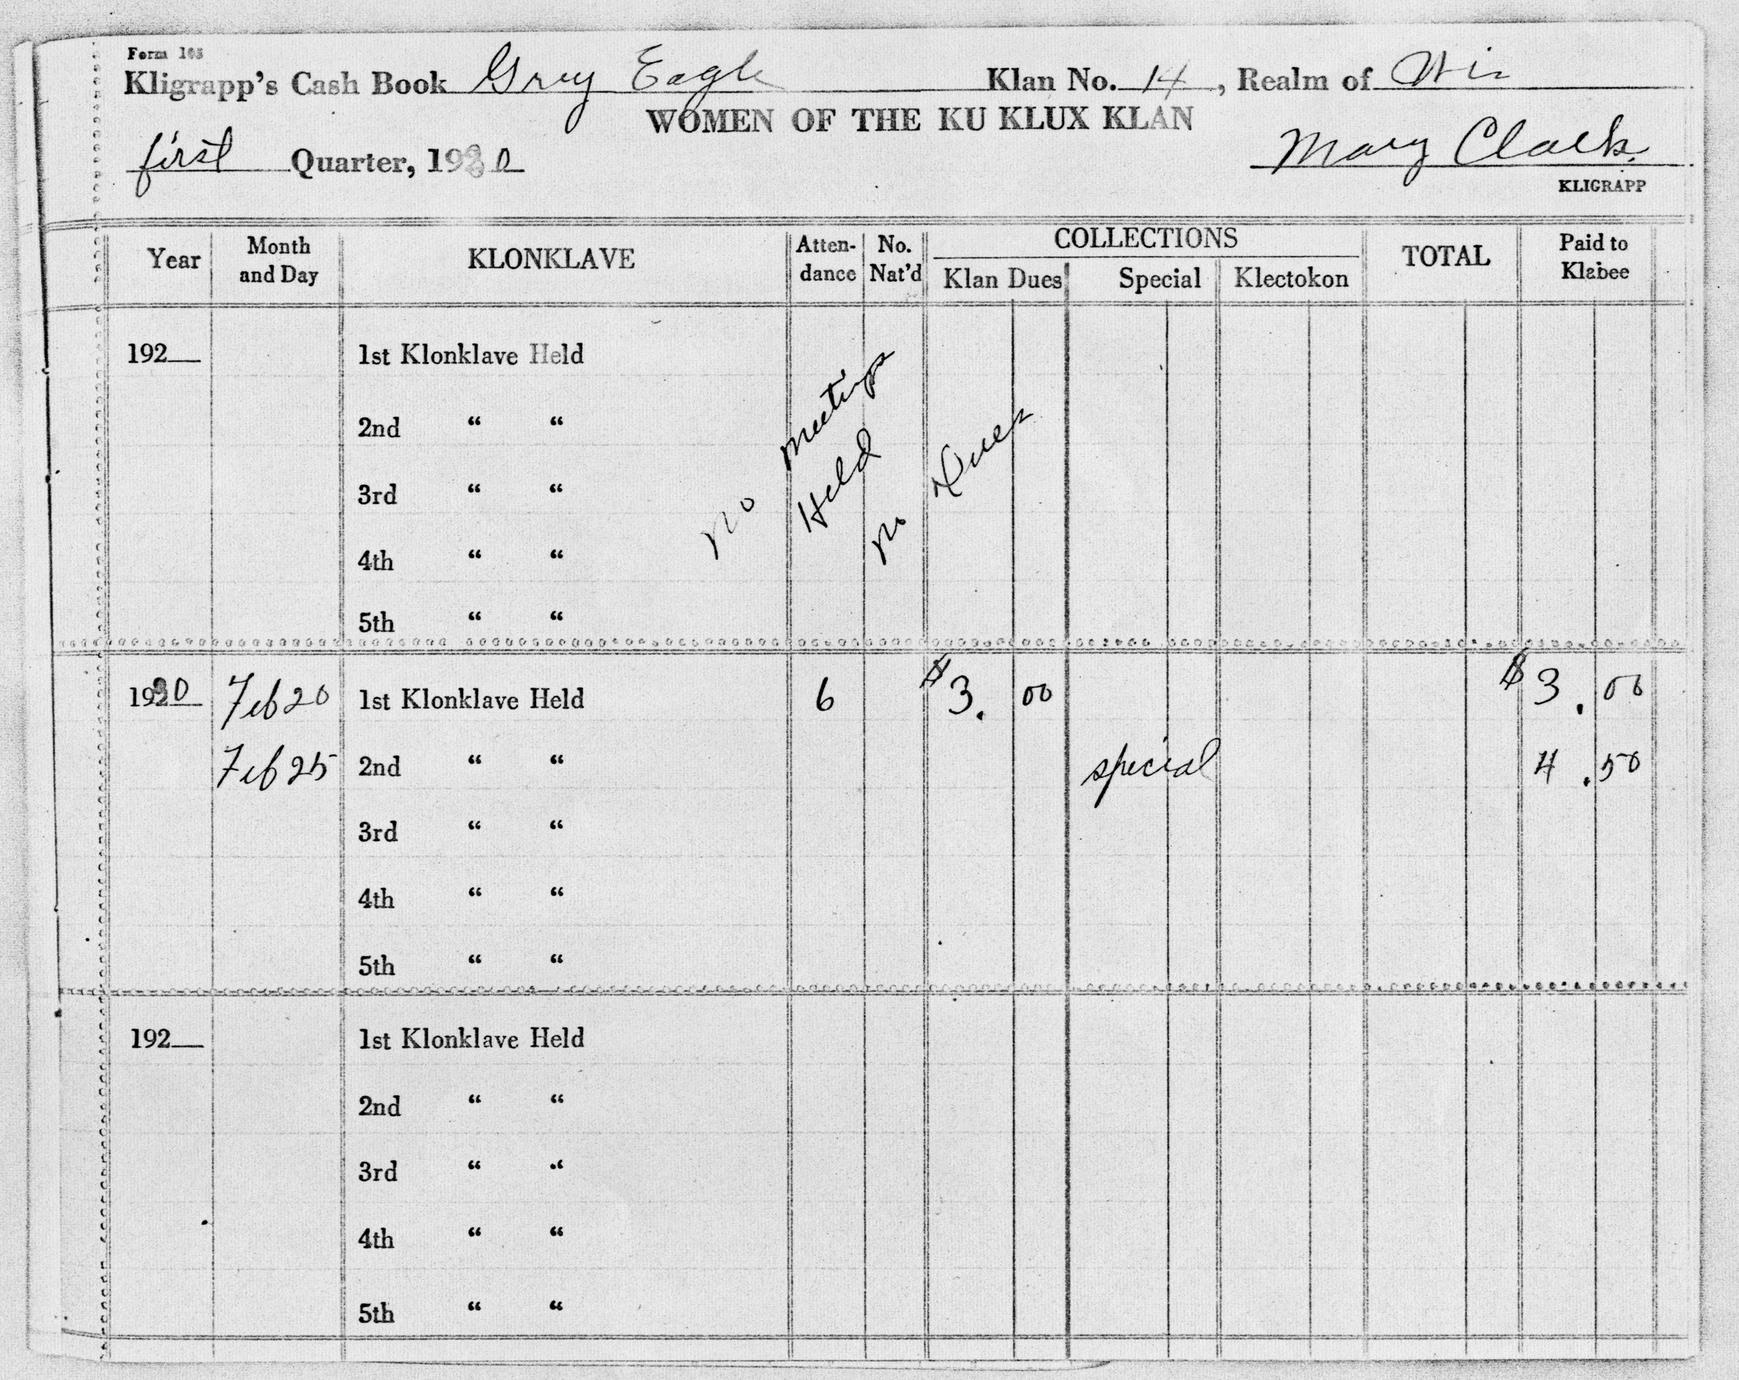 Form 103
Kligrapp's Cash Book Grey Eagle Klan No. 14, Realm of Wis
WOMEN OF THE KU KLUX KLAN
first Quarter, 1930 Mary Clark
KLIGRAPP
Year Month and Day KLONKLAVE Atten-dance No. Nat'd COLLECTIONS TOTAL Paid to Klabee
Klan Dues Special Klectokon
192__ 1st Klonklave Held
2nd “ “
3rd “ “
4th “ “
5th “ “
no meetings Held
no Dues
1930 Feb 20 1st Klonklave Held 6 $3.00 $3.00
Feb 25 2nd “ “ special 4.50
3rd “ “
4th “ “
5th “ “
192__ 1st Klonklave Held
2nd “ “
3rd “ “
4th “ “
5th “ “